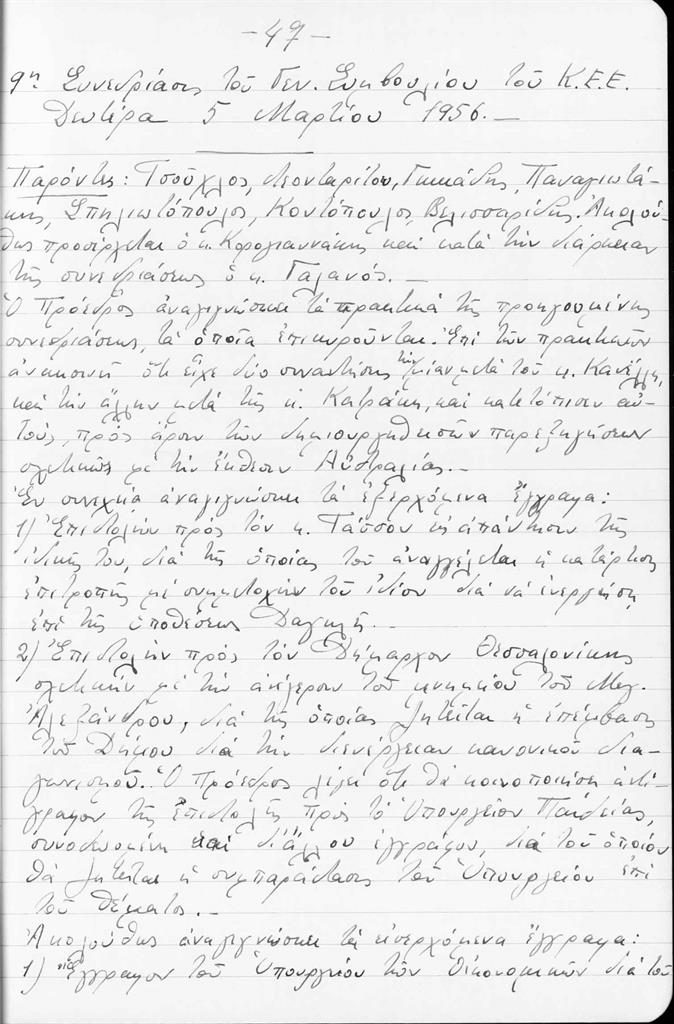 -47-
9η Συνεδρίασις τοῦ Γεν. Συμβουλίου τοῦ Κ.Ε.Ε.
Δευτέρα 5 Μαρτίου 1956.—
Παρόντες: Τσοῦχλος, Λεονταρίτου, Γκικάδης, Παναγιωτά-
κης, Σπηλιωτόπουλος, Κοντόπουλος, Βελισσαρίδης. Ἀκολού-
θως προσέρχεται ὁ κ. Κορογιαννάκης καὶ κατὰ τὴν διάρκειαν
τῆς συνεδριάσεως ὁ κ. Γαλανός.—
Ὁ Πρόεδρος ἀναγιγνώσκει τὰ πρακτικὰ τῆς προηγουμένης
συνεδριάσεως, τὰ ὁποῖα ἐπικυροῦνται. Ἐπὶ τῶν πρακτικῶν
ἀνακοινοῖ ὅτι εἶχε δύο συναντήσεις τὴν μίαν μετὰ τοῦ κ. Κανέλλη,
καὶ τὴν ἄλλην μετὰ τῆς κ. Κατράκη, καὶ κατετόπισεν αὐ-
τούς, πρὸς ἄρσιν τῶν δημιουργηθεισῶν παρεξηγήσεων
σχετικῶς μὲ τὴν ἔκθεσιν Αὐστραλίας.—
Ἐν συνεχείᾳ ἀναγιγνώσκει τὰ ἐξερχόμενα ἔγγραφα:
1) Ἐπιστολὴν πρὸς τὸν κ. Τάσσον εἰς ἀπάντησιν τῆς
ἰδικῆς του, διὰ τῆς ὁποίας τοῦ ἀναγγέλεται ἡ κατάρτισις
ἐπιτροπῆς μὲ συμμετοχὴν τοῦ ἰδίου διὰ νὰ ἐνεργήσῃ
ἐπὶ τῆς ὑποθέσεως .—
2) Ἐπιστολὴν πρὸς τὸν Δήμαρχον Θεσσαλονίκης
σχετικὴν μὲ τὴν ἀνέγερσιν τοῦ μνημείου τοῦ Μεγ.
Ἀλεξάνδρου, διὰ τῆς ὁποίας ζητεῖται ἡ ἐπέμβασις
τοῦ Δήμου διὰ τὴν διενέργειαν κανονικοῦ δια-
γωνισμοῦ. Ὁ Πρόεδρος λέγει ὅτι θὰ κοινοποιήσῃ ἀντί-
γραφον τῆς ἐπιστολῆς πρὸς τὸ Ὑπουργεῖον Παιδείας,
συνοδευομένη καὶ δι' ἄλλου ἐγγράφου, διὰ τοῦ ὁποίου
θὰ ζητεῖται ἡ συμπαράστασις τοῦ Ὑπουργείου ἐπὶ
τοῦ θέματος.—
Ἀκολούθως ἀναγιγνώσκει τὰ εἰσερχόμενα ἔγγραφα:
1) Ἔγγραφον τοῦ Ὑπουργείου τῶν Οἰκονομικῶν διὰ τοῦ